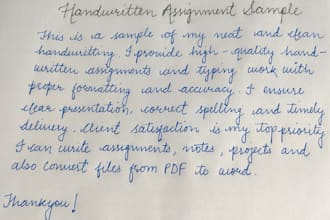 Handwritten Assignment Sample
This is a sample of my neat and clean
handwriting. I provide high-quality hand-
written assignments and typing work with
proper formatting and accuracy. I ensure
clear presentation, correct spelling and timely
delivery. Client satisfaction is my top priority
I can write assignments, notes, projects and
also convert files from PDF to word.
Thankyou!